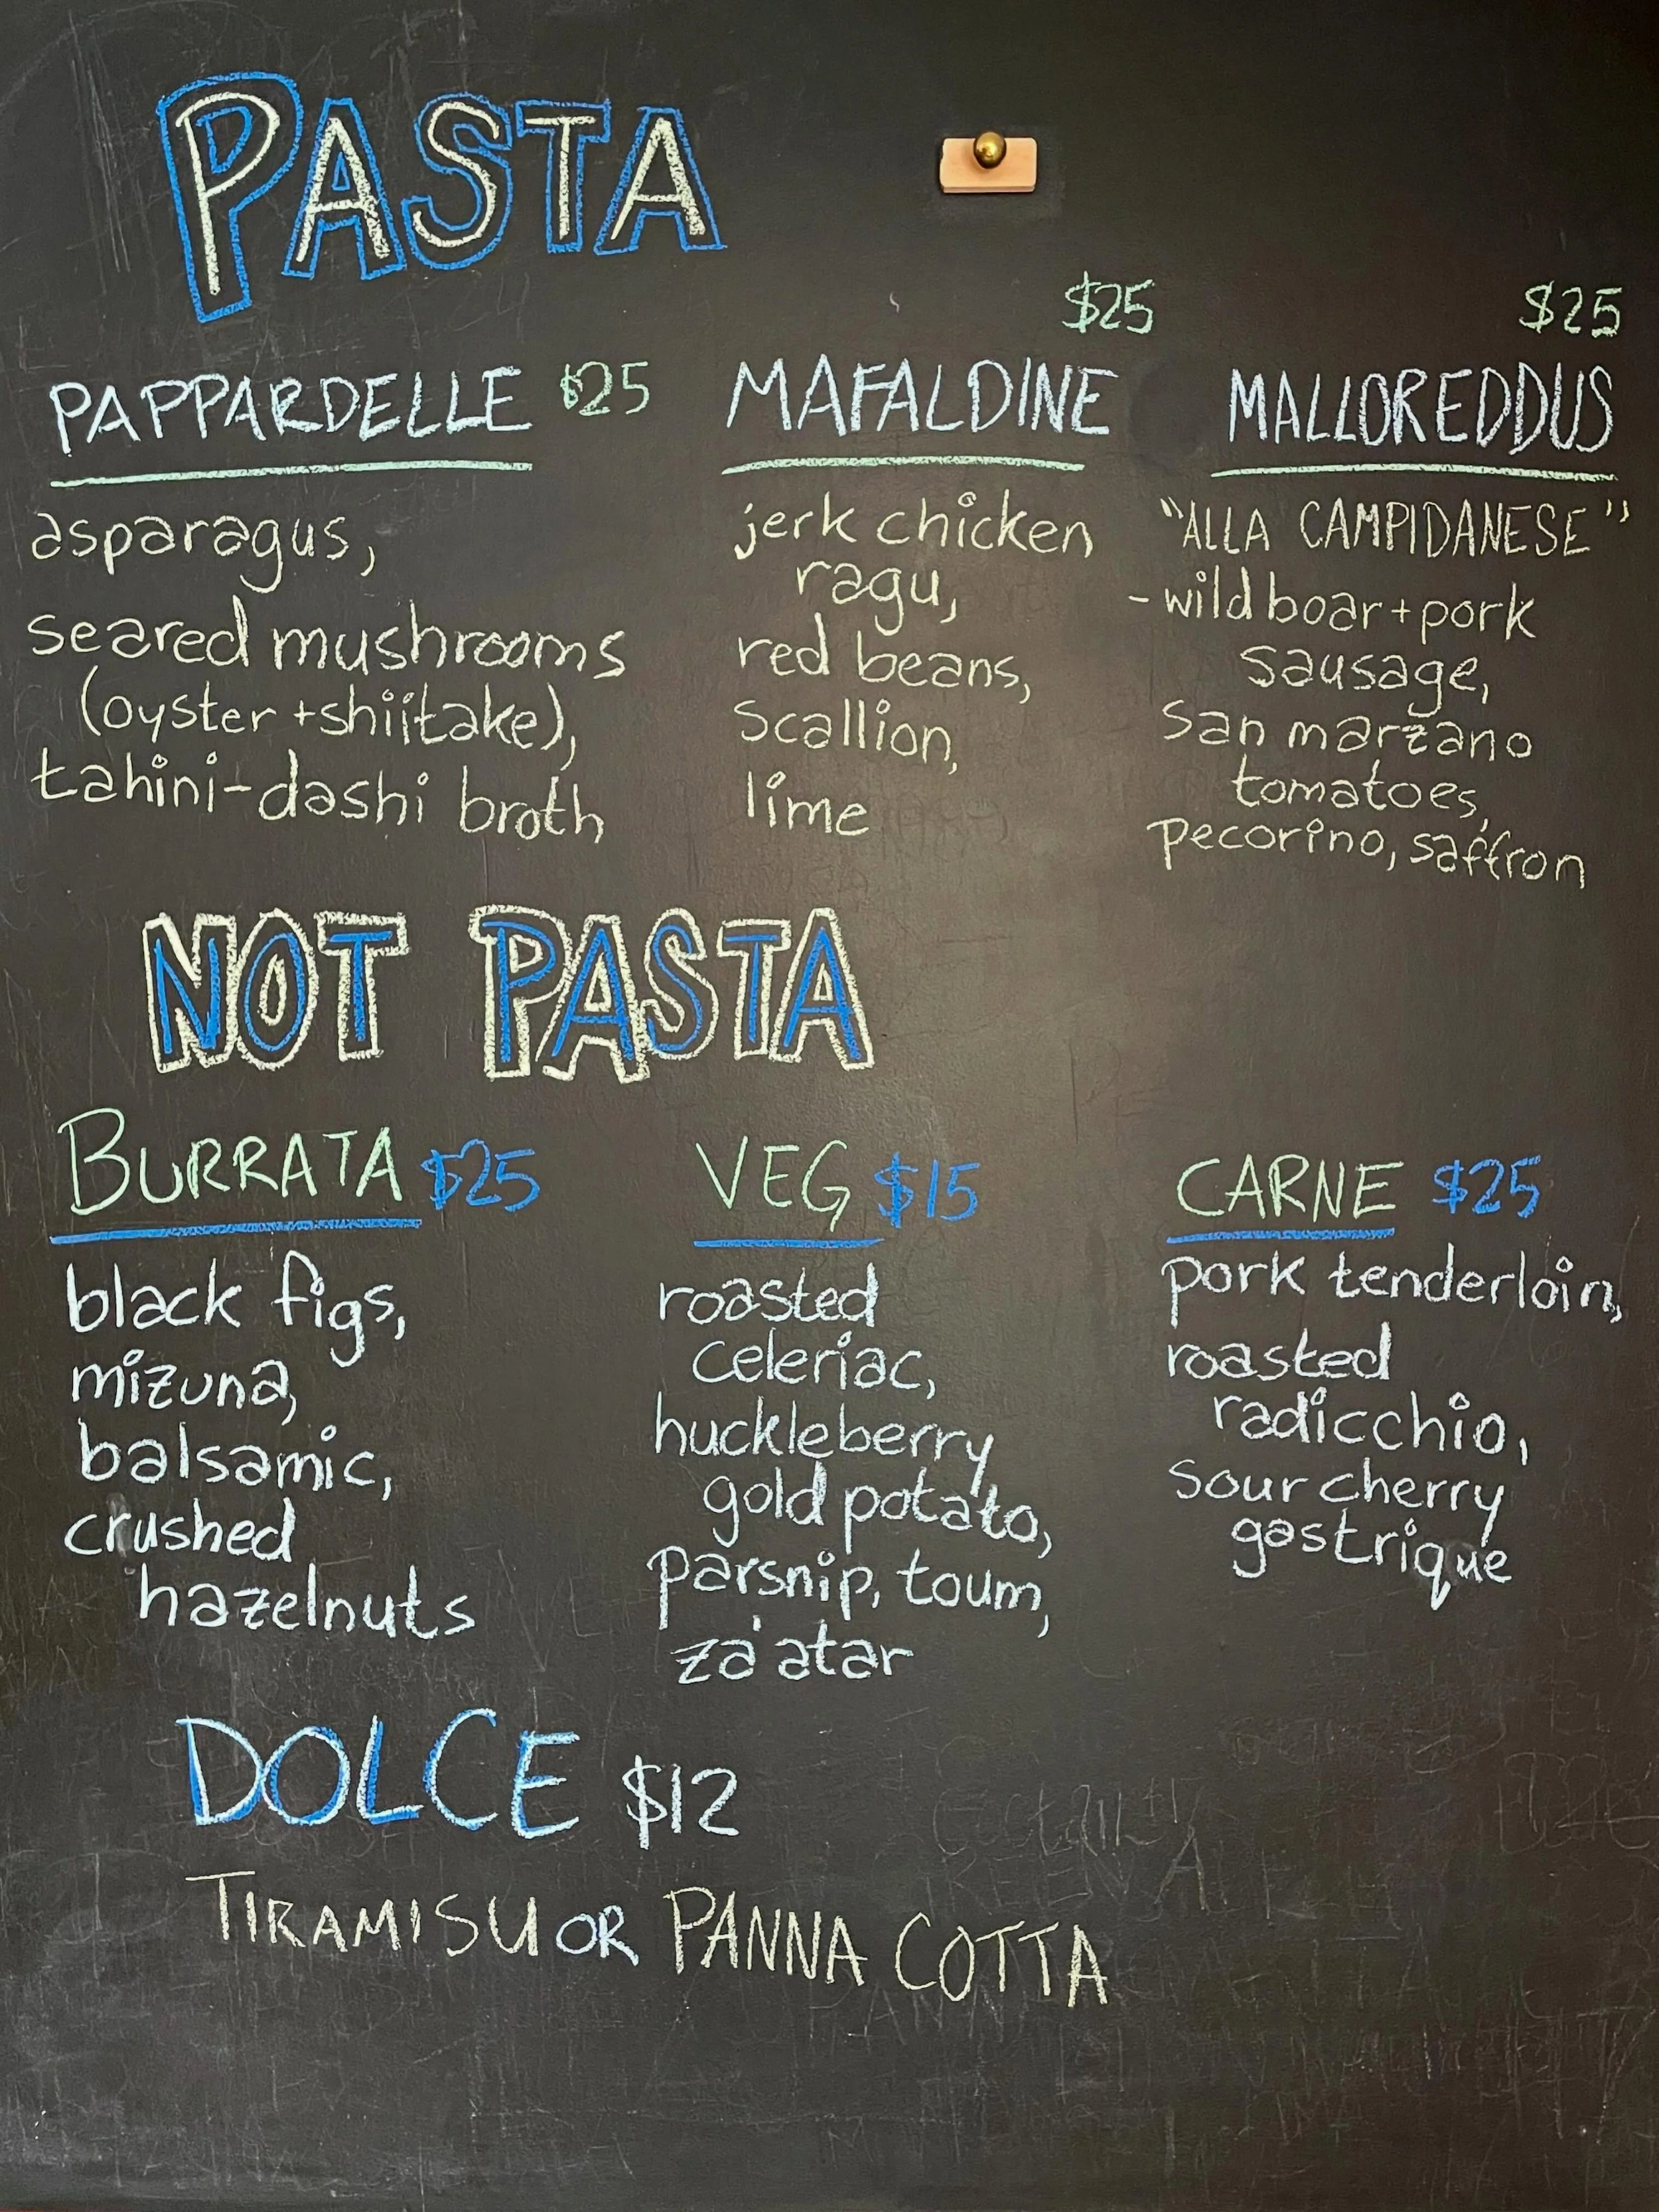 PASTA
PAPPARDELLE $25
asparagus,
seared mushrooms
(oyster + shiitake),
tahini-dashi broth
$25
MAFALDINE
jerk chicken
ragu,
red beans,
scallion,
lime
$25
MALLOREDDUS
"ALLA CAMPIDANESE"
- wild boar + pork
sausage,
san marzano
tomatoes,
pecorino, saffron
NOT PASTA
BURRATA $25
black figs,
mizuna,
balsamic,
crushed
hazelnuts
VEG $15
roasted
celeriac,
huckleberry
gold potato,
parsnip, toum,
za'atar
CARNE $25
pork tenderloin,
roasted
radicchio,
sour cherry
gastrique
DOLCE $12
TIRAMISU OR PANNA COTTA